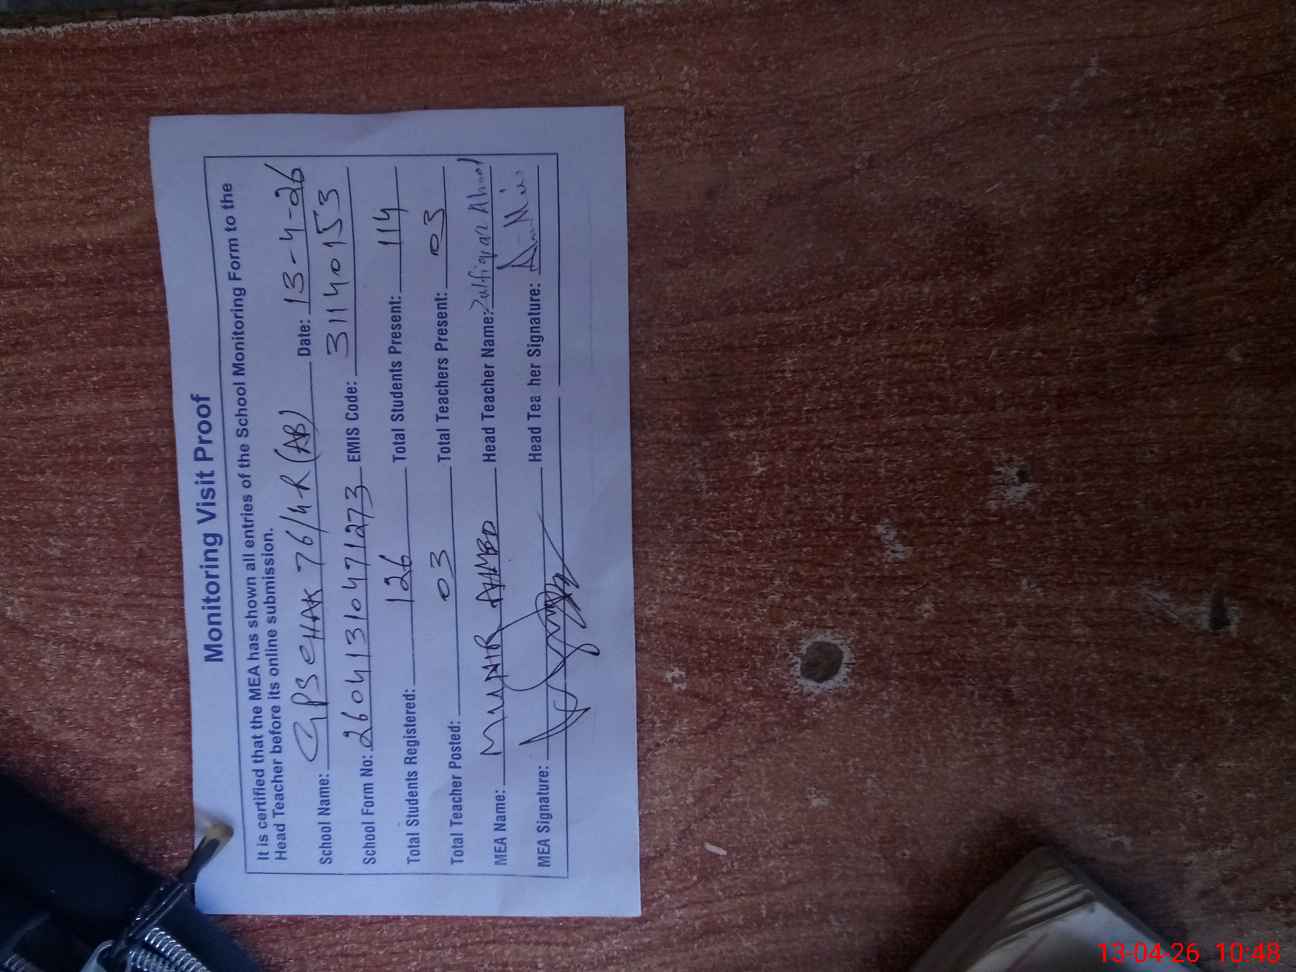 Monitoring Visit Proof
It is certified that the MEA has shown all entries of the School Monitoring Form to the
Head Teacher before its online submission.
School Name: GPS CHAK 76/4R (AB) Date: 13-4-26
School Form No: 26041310471273 EMIS Code: 31140153
Total Students Registered: 126 Total Students Present: 114
Total Teacher Posted: 03 Total Teachers Present: 03
MEA Name: MUNIR AHMED Head Teacher Name: Zulfiqar Ahmad
MEA Signature: Head Teacher Signature:
13-04-26 10:48